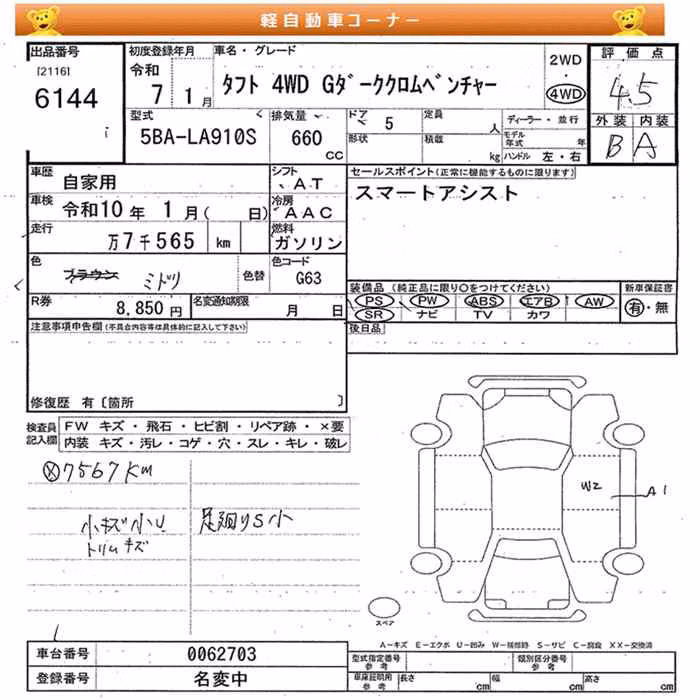 軽自動車コーナー
出品番号
[2116]
6144
初度登録年月
令和
7 1月
車名・グレード
タフト 4WD Gダーククロムベンチャー
2WD
・
4WD
評価点
4.5
外装 内装
B A
型式
5BA-LA910S
排気量
660
CC
ドア
5
形状
定員
人
積載
kg
ディーラー・並行
モデル年式 年
ハンドル 左・右
車歴
自家用
シフト
AT
車検
令和10年 1月( 日)
冷房
AAC
走行
万7千565 km
燃料
ガソリン
色
ブラウン ミドリ
色替
色コード
G63
R券
8,850円
名変通知期限
月 日
セールスポイント(正常に機能するものに限ります)
スマートアシスト
装備品(純正品に限り○をつけてください)
PS PW ABS エアB AW
SR ナビ TV カワ
新車保証書
有・無
後日品
注意事項申告欄(不具合内容等は具体的に記入して下さい)
修復歴 有〔箇所 〕
検査員記入欄
FW キズ・飛石・ヒビ割・リペア跡・×要
内装 キズ・汚レ・コゲ・穴・スレ・キレ・破レ
7567Km
小キズ小U
トリムキズ
足廻りS小
W2
A1
スペア
A-キズ E-エクボ U-凹み W-補修跡 S-サビ C-腐食 XX-交換済
車台番号
0062703
登録番号
名変中
型式指定番号
参考
類別区分番号
参考
車庫証明用
参考
長さ cm
幅 cm
高さ cm